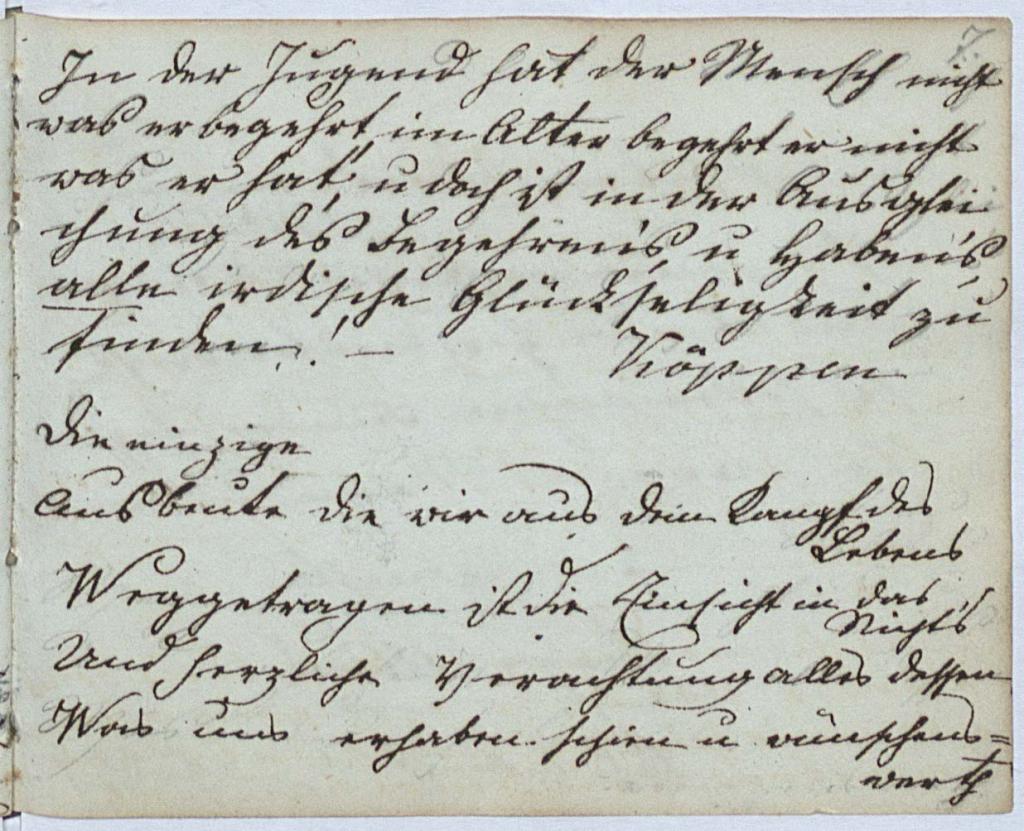 7.
In der Jugend hat der Mensch nicht
was er begehrt, im Alter begehrt er nicht
was er hat, u doch ist in der Ausglei
chung des Begehrens, u Habens
alle irdische Glückseligkeit zu
finden! –
Köppen
Die einzige
Ausbeute die wir aus dem Kampf des
Lebens
Weggetragen ist die Einsicht in das
Nichts
Und herzliche Verachtung alles dessen
Was uns erhaben schien u wünschens=
werth